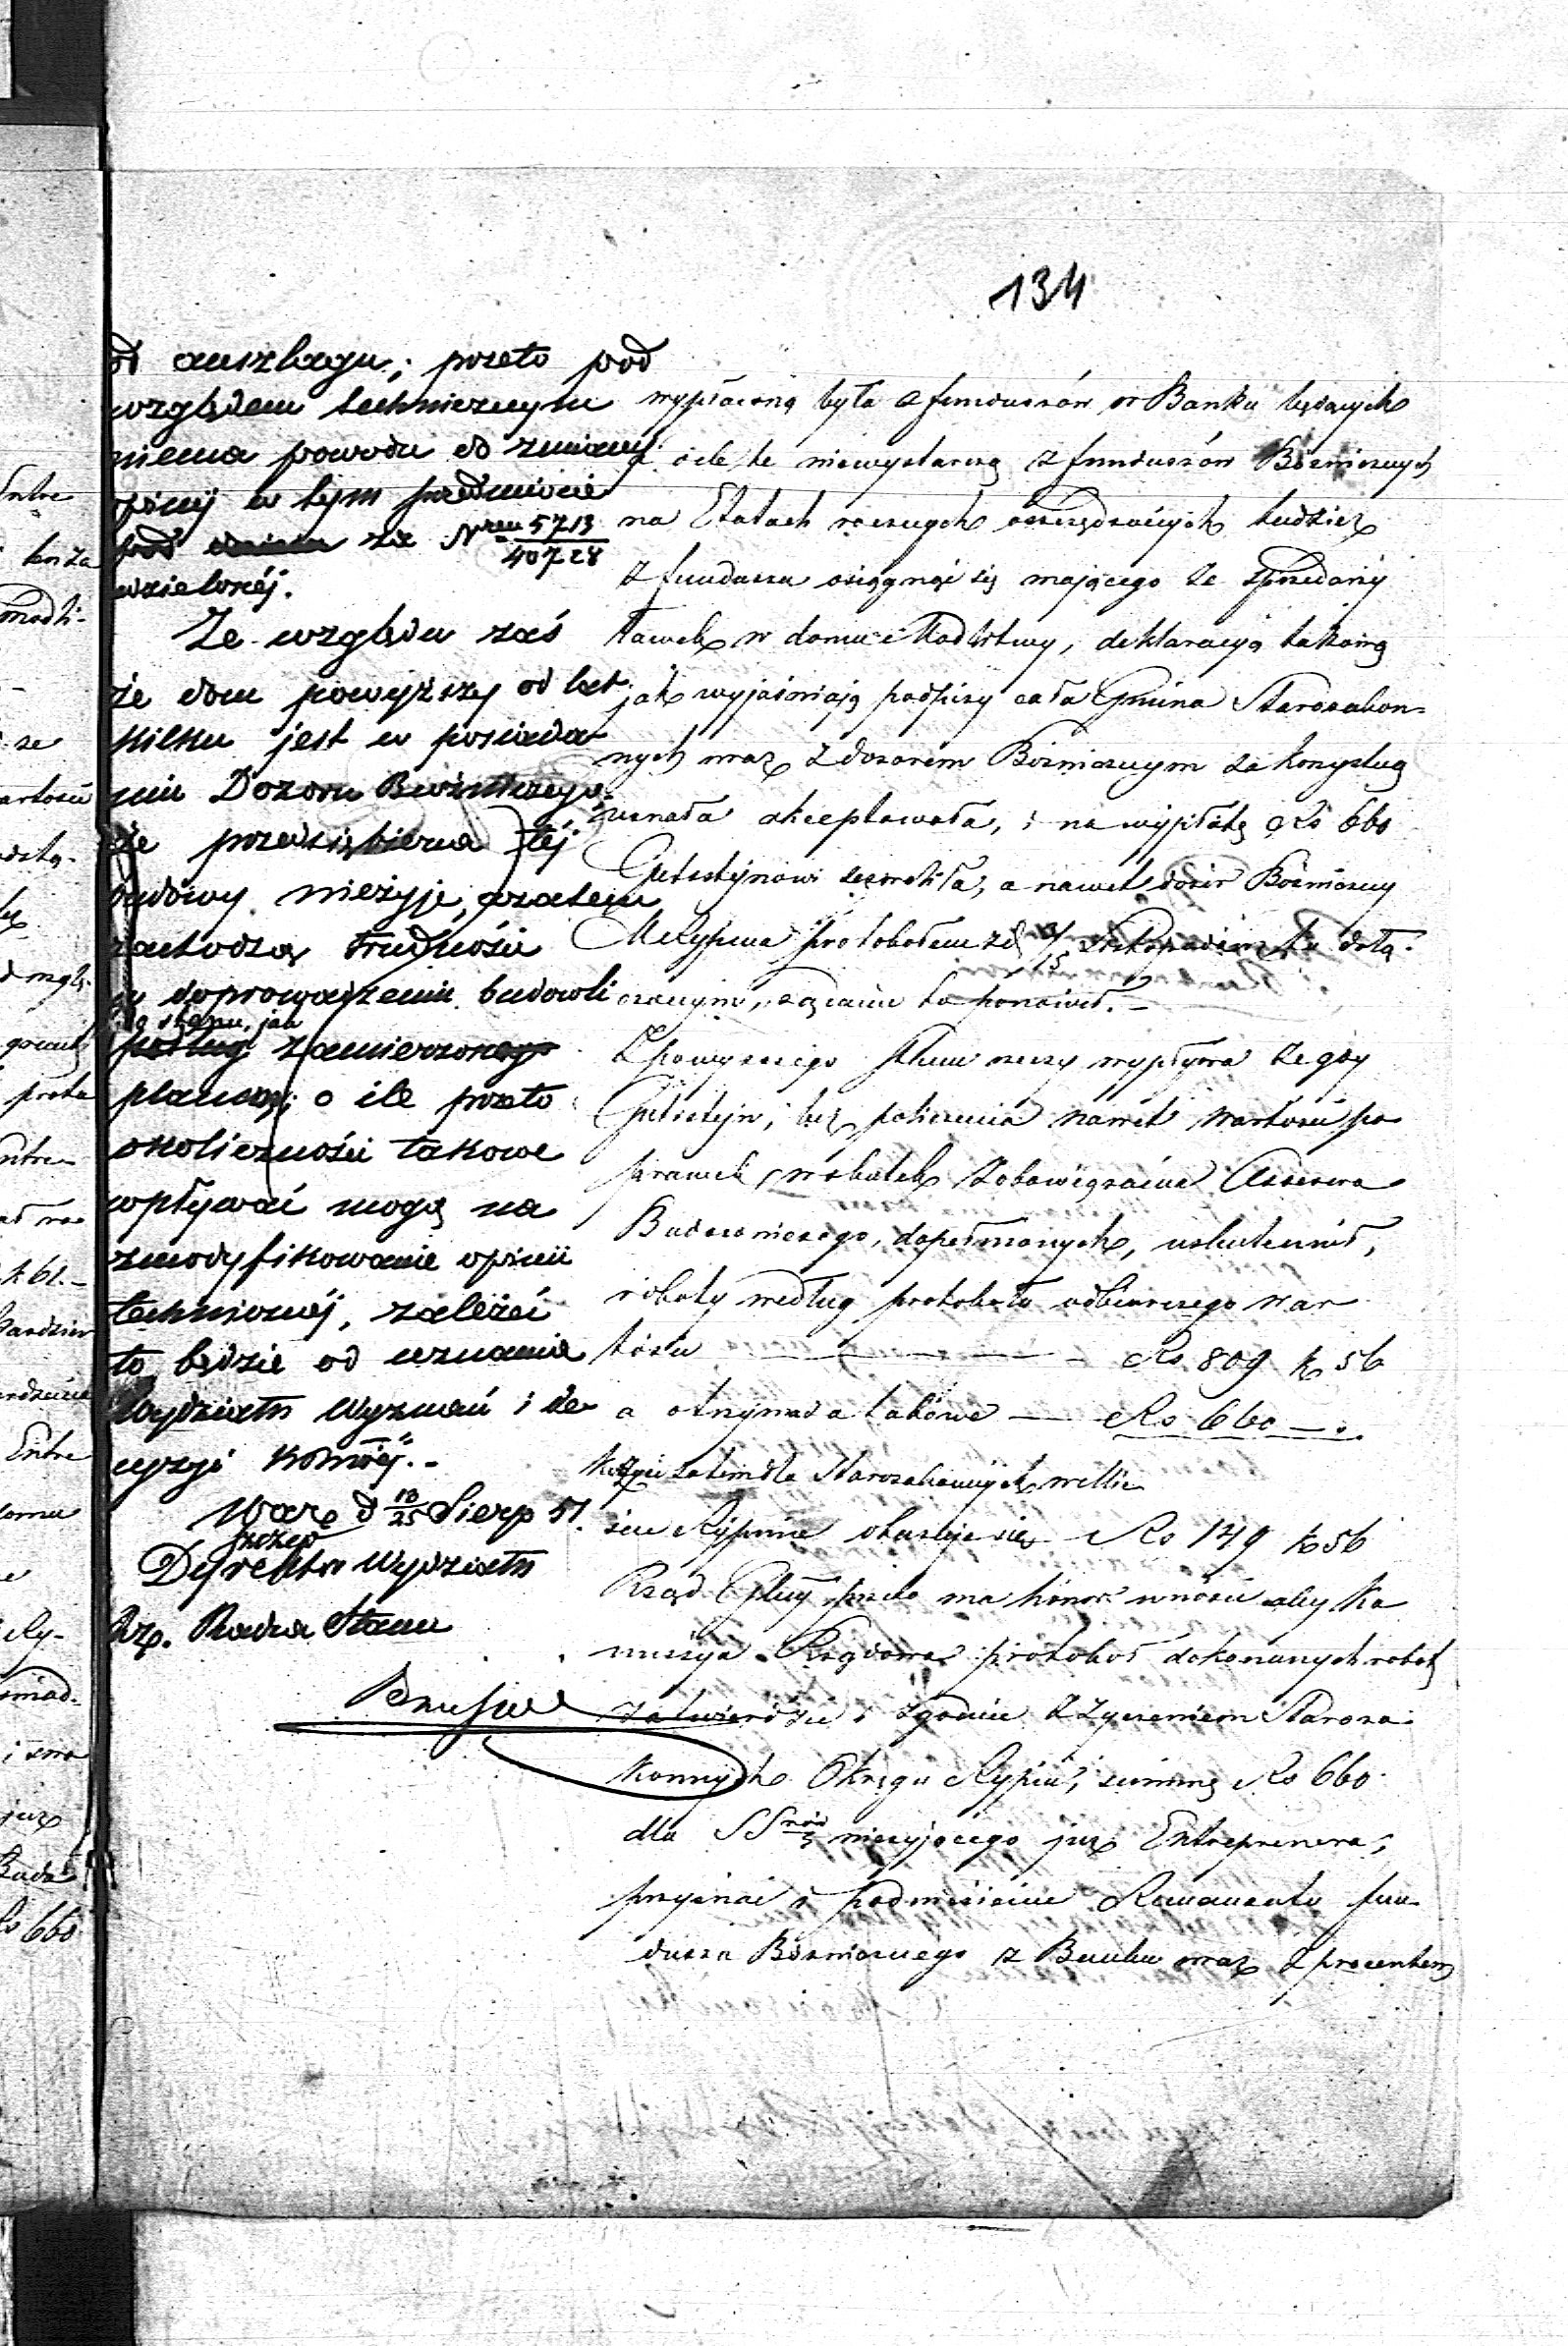 134
od auszlagu; przeto pod
względem technicznym
niema powodu do zmiany
opinij w tym przedmiocie
pod za Nrem 5713/40728
udzielonéj.
Ze względu zaś
że dom powyższy od lat
kilku jest w posiada
niu Dozoru Bóżniczego,
że przedsiębierca téj
budowy nieżyje, zatem
zachodzą trudności
w doprowadzeniu budowli
do stanu, jak
podług zamierzonego
planem; o ile przeto
okoliczności takowe
wpływać mogą na
zmodyfikowanie opinii
technicznéj, zależeć
to będzie od uznania
Wydziału Wyznań i de
cyzji Kommŏéj.-
Warz d 13/25 Sierp 51.
Dyrektor Wydziału
Rz. Radca Stanu
wypłaconą była z funduszów w Banku będących
a ile te niewystarczą z funduszów Bożniczych
na Etatach rocznych oszczędzonych tudzież
z funduszu osiągnąć się mającego ze sprzedaży
ławek w domu Modlitwy, deklaracyą takową
jak wyjaśniają podpisy cała Gmina Starozakon-
nych wraz z dozorem Bożniczym za korzystną
uznała akceptowała, i na wypłatę Rs 660
Gutsztynowi zezwoliła, a nawet dozór Bożniczy
w Rypinie protokołem z d 3/15 tu dołą-
czonym, żądanie to ponowił.-
Z powyższego stanu rzeczy wypływa że gdy
Gutsztejn, bez policzenia nawet wartości po
prawek w skutek zobowiązania Assesora
Budowniczego, dopełnionych, uskutecznił,
roboty według protokołu odbiorczego war
tości — Rs 809 k 56
a otrzymać ma takowe — Rs 660 —.
Korzyść zatem dla Starozakonnych w mie
ście Rypinie okazuje się Rs 149 k 56
Rząd Gbny przeto ma honor wnosić aby Ko
missya Rządowa protokół dokonanych robót
zatwierdzić i zgodnie z życzeniem Staroza
konnych Okręgu Rypiń, summę Rs 660
dla SSrów nieżyjącego już Entreprenera,
przyznać i podniesienie Remanentu fun-
duszu Bożniczego z Banku wraz z procentem